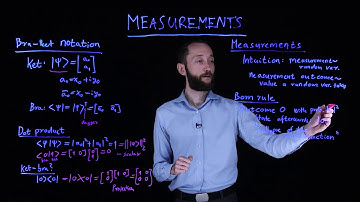 MEASUREMENTS
Bra-ket notation
Ket: |Ψ⟩ = [a₀ a₁]
a₀ = x₀ + iy₀
a₀* = x₀ - iy₀
Bra: ⟨Ψ| = |Ψ⟩† = [a₀* a₁*]
dagger
Dot product
⟨Ψ|Ψ⟩ = |a₀|² + |a₁|² = 1 = || |Ψ⟩ ||²
⟨0|1⟩ = [1 0] [0 1] = 0 → scalar
bra ket
Ket-bra?
|0⟩⟨0| → |0⟩⟨0| = [1 0] [1 0] = [1 0 0 0]
Projection
Measurements
Intuition: measurement ~ random var.
Measurement outcome ~ value a random var. takes
Born rule
Outcome 0 with
state afterwards
collapse of